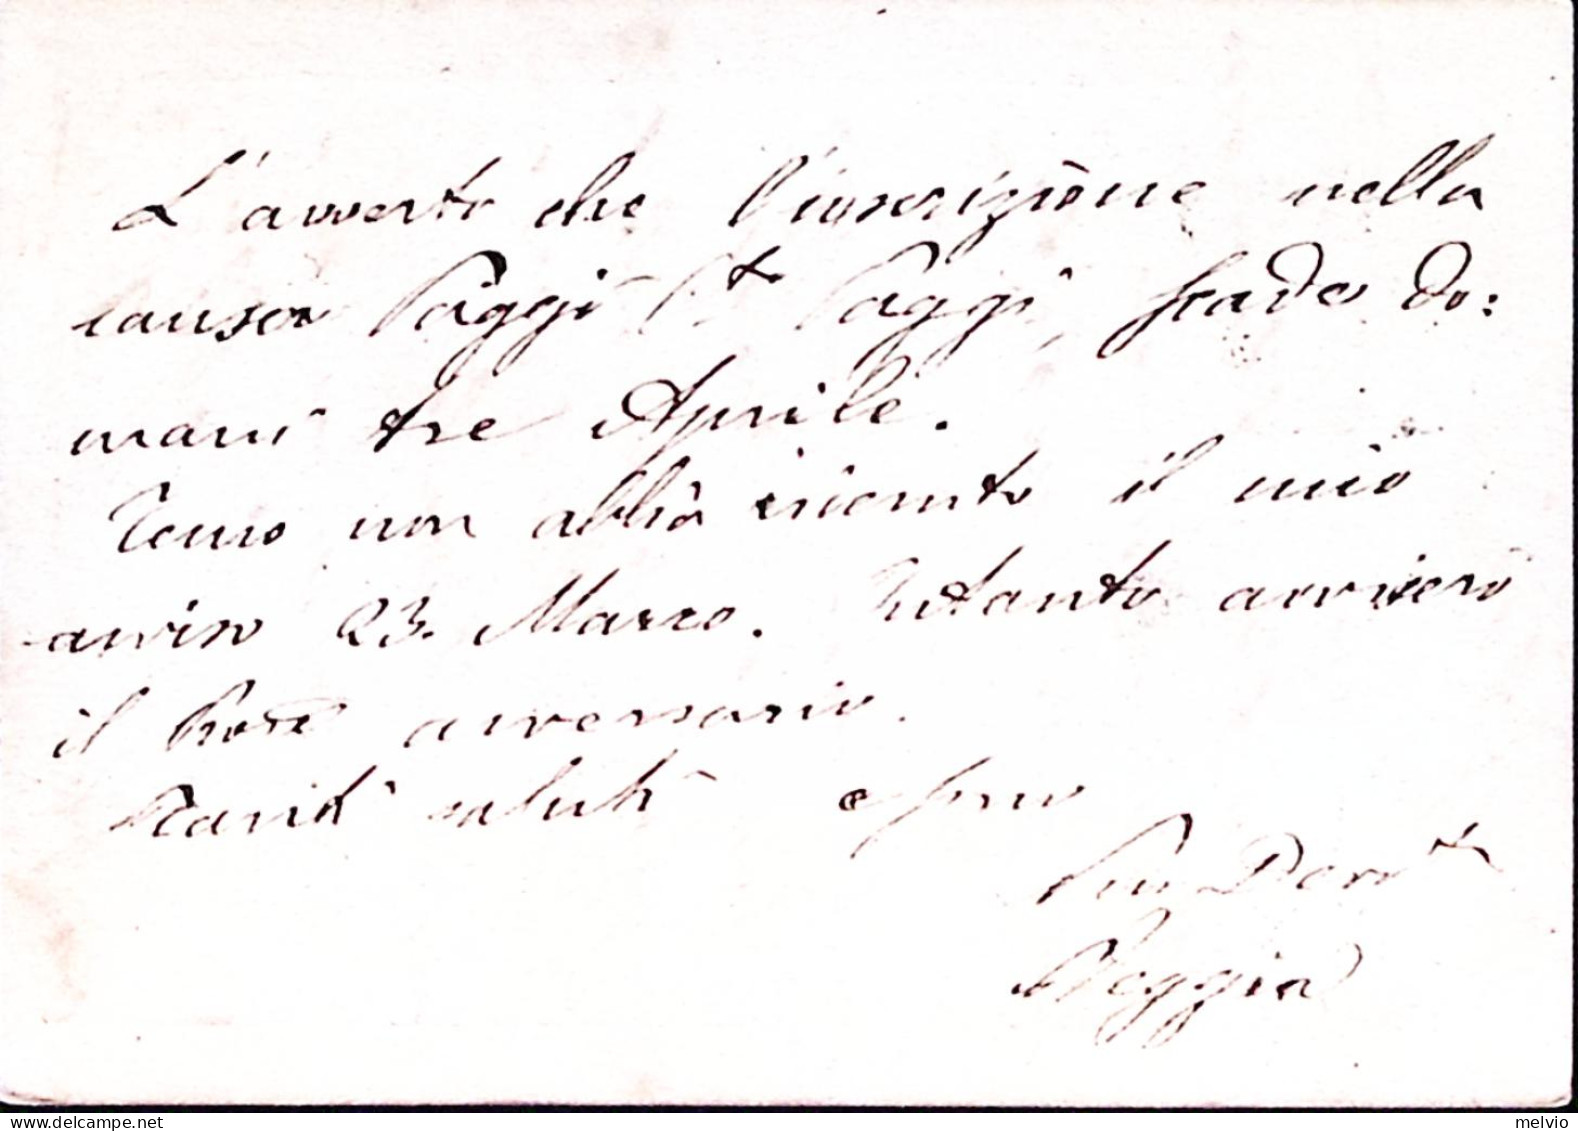 L'avverto che l'inscrizione nella
causa Poggi C.to Poggi, scade do:
mani tre Aprile.
Temo non abbia ricevuto il mio
avviso 23. Marzo. Intanto avviserò
il Proc.e avversario.
Tanti saluti e sono
Suo Dev.to
Poggia
melvio